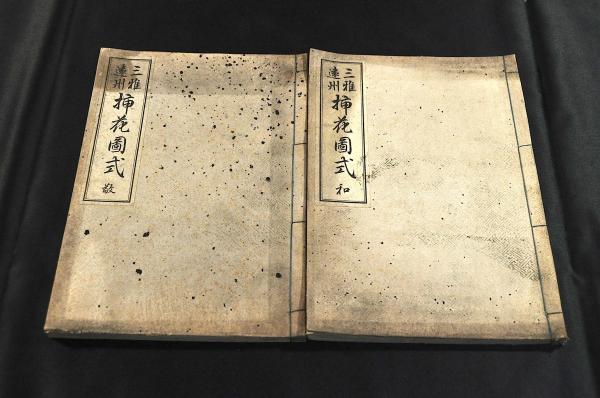 三雅
遠州
挿花圖式
敬
三雅
遠州
挿花圖式
和